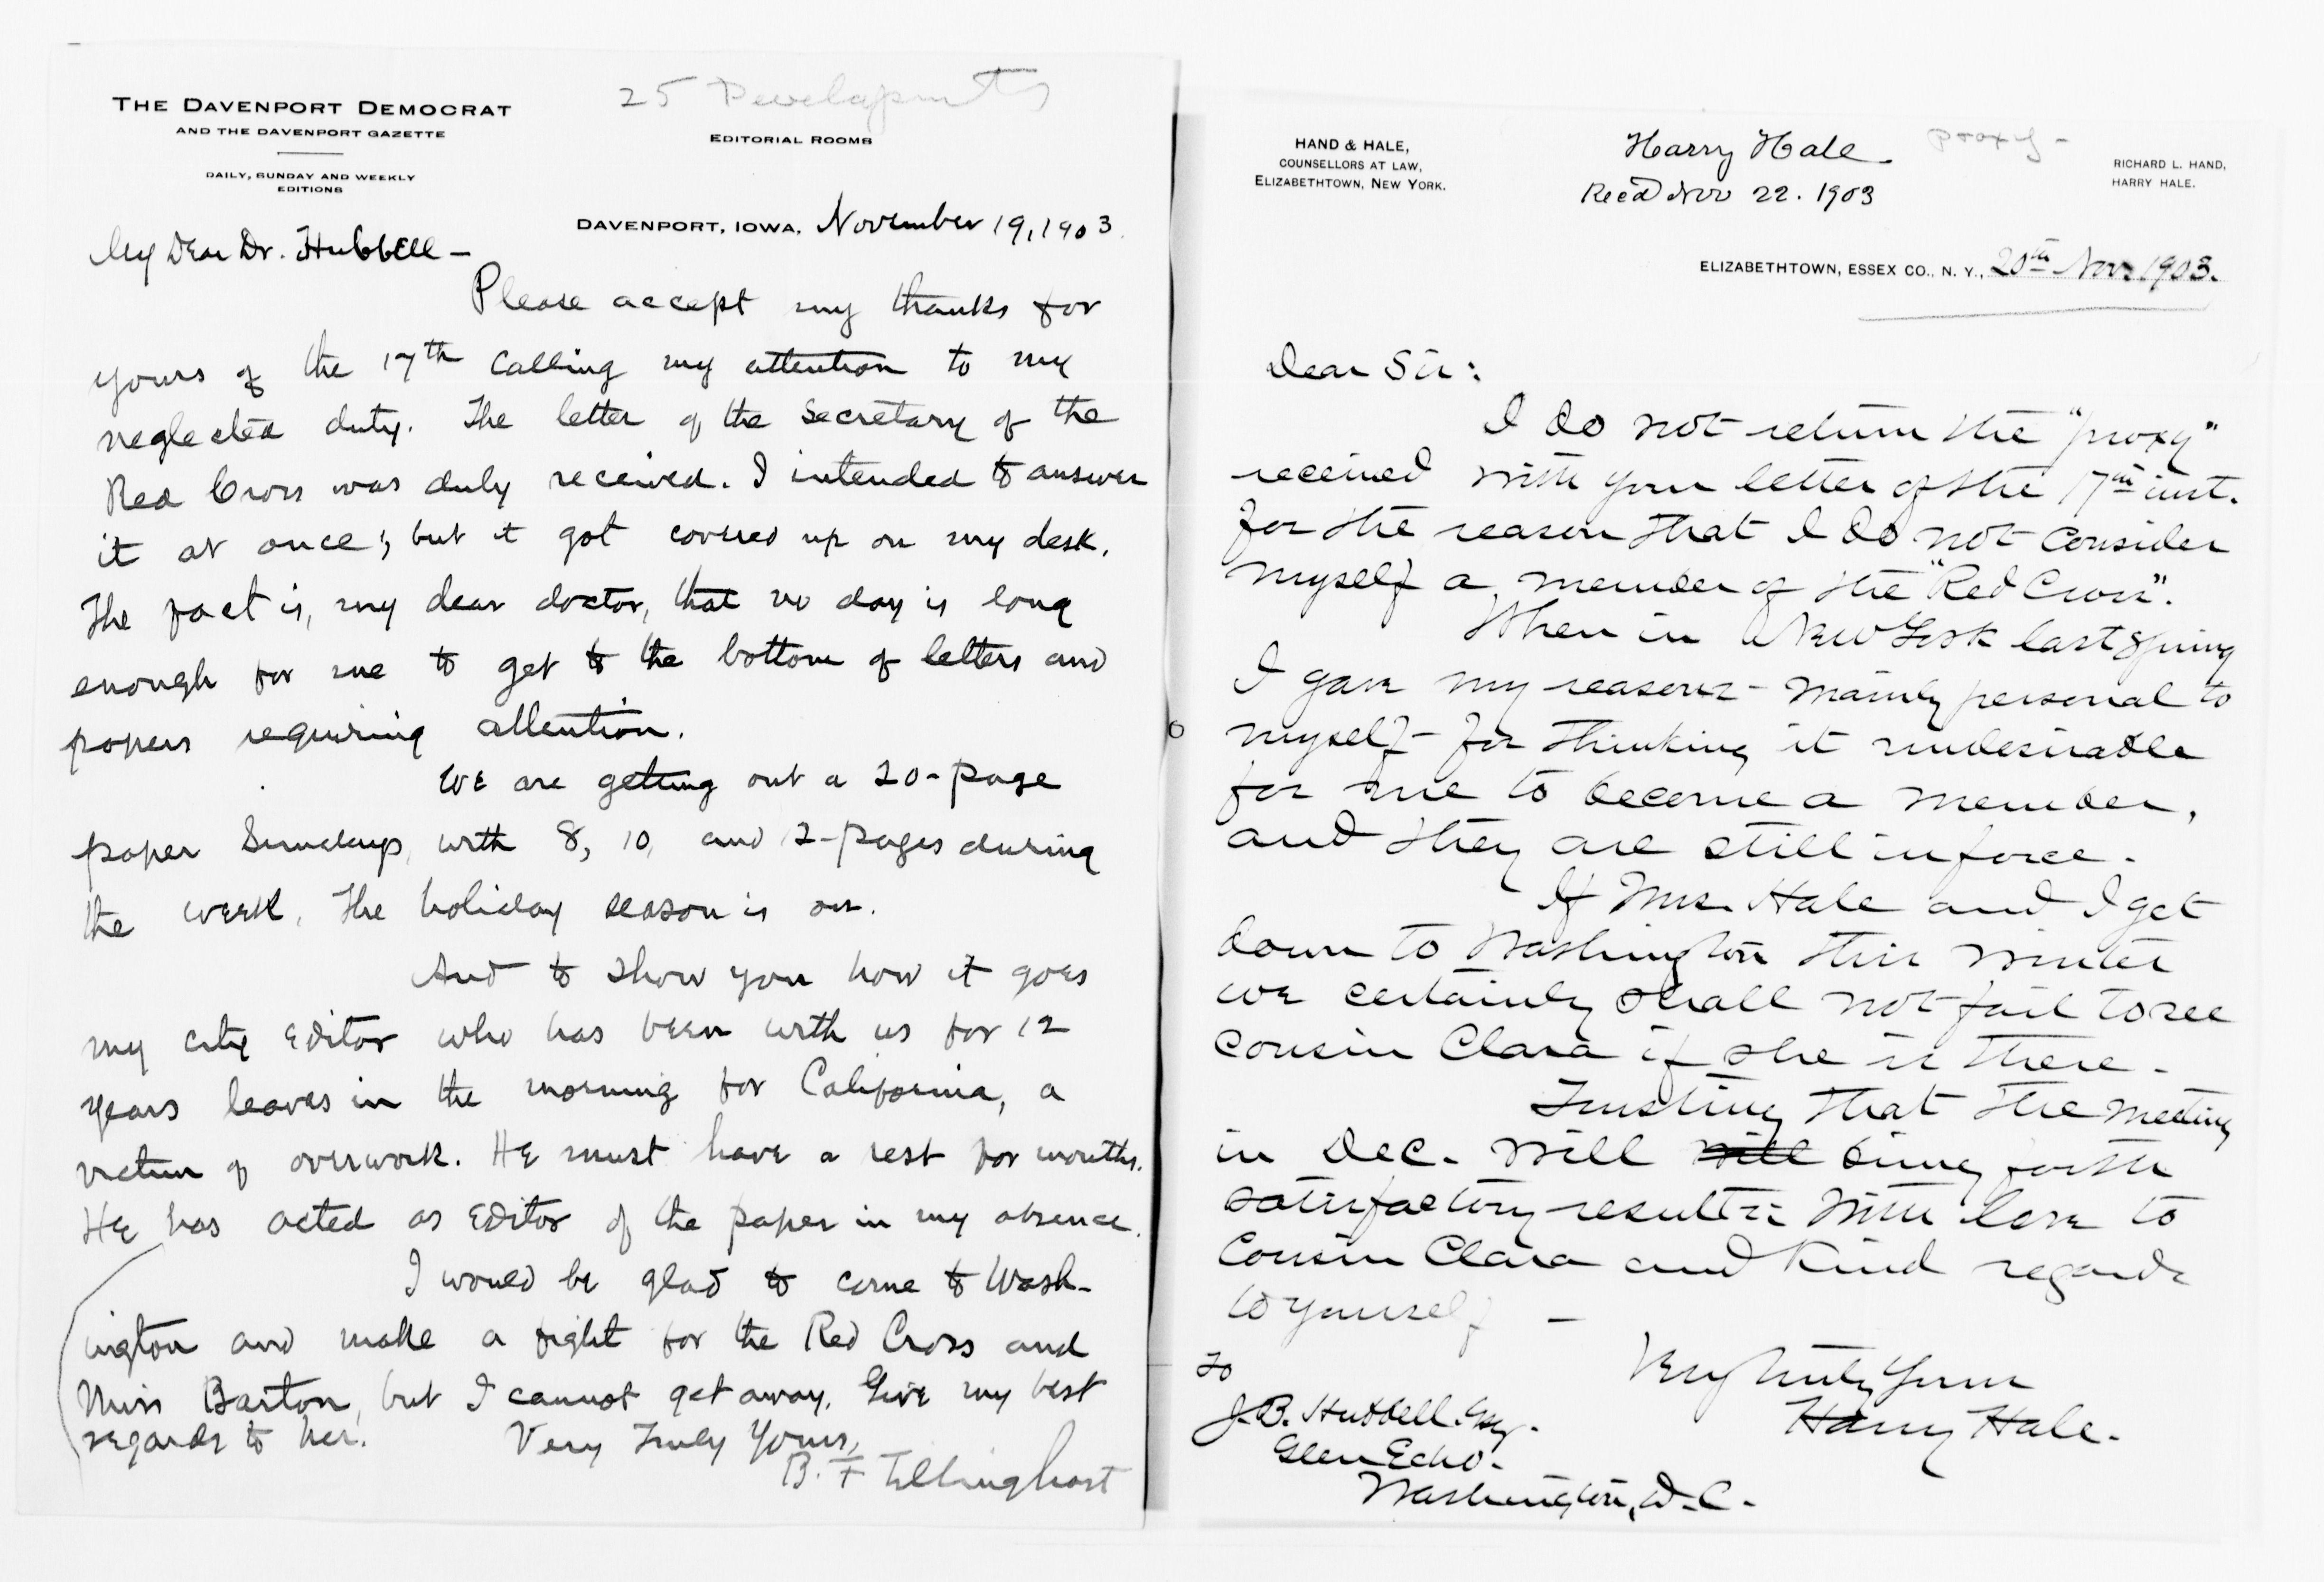 25 Developments
THE DAVENPORT DEMOCRAT
AND THE DAVENPORT GAZETTE
DAILY, SUNDAY AND WEEKLY
EDITIONS
EDITORIAL ROOMS
DAVENPORT, IOWA, November 19, 1903.
My Dear Dr. Hubbell —
Please accept my thanks for
yours of the 17th calling my attention to my
neglected duty. The letter of the secretary of the
Red Cross was duly received. I intended to answer
it at once; but it got covered up on my desk.
The fact is, my dear doctor, that no day is long
enough for me to get to the bottom of letters and
papers requiring attention.
We are getting out a 20-page
paper Sundays, with 8, 10, and 12-pages during
the week. The holiday season is on.
And to show you how it goes
my city editor who has been with us for 12
years leaves in the morning for California, a
victim of overwork. He must have a rest for months.
He has acted as editor of the paper in my absence.
I would be glad to come to Wash-
ington and make a fight for the Red Cross and
Miss Barton, but I cannot get away. Give my best
regards to her. Very Truly Yours,
B. F Tillinghast
HAND & HALE,
COUNSELLORS AT LAW,
ELIZABETHTOWN, NEW YORK.
Harry Hale.
Recd Nov 22. 1903
Proxy -
RICHARD L. HAND,
HARRY HALE.
ELIZABETHTOWN, ESSEX CO., N. Y., 20th Nov. 1903.
Dear Sir:
I do not return the "proxy"
received with your letter of the 17th inst.
for the reason that I do not consider
myself a member of the "Red Cross".
When in New York last spring
I gave my reasons - mainly personal to
myself - for thinking it undesirable
for me to become a member,
and they are still in force.
If Mrs. Hale and I get
down to Washington this winter
we certainly shall not fail to see
Cousin Clara if she is there.
Trusting that the meeting
in Dec. will will bring forth
satisfactory results with love to
Cousin Clara and kind regards
to yourself —
Very truly yours
Harry Hale.
To
J. B. Hubbell Esq.
Glen Echo.
Washington, D.C.